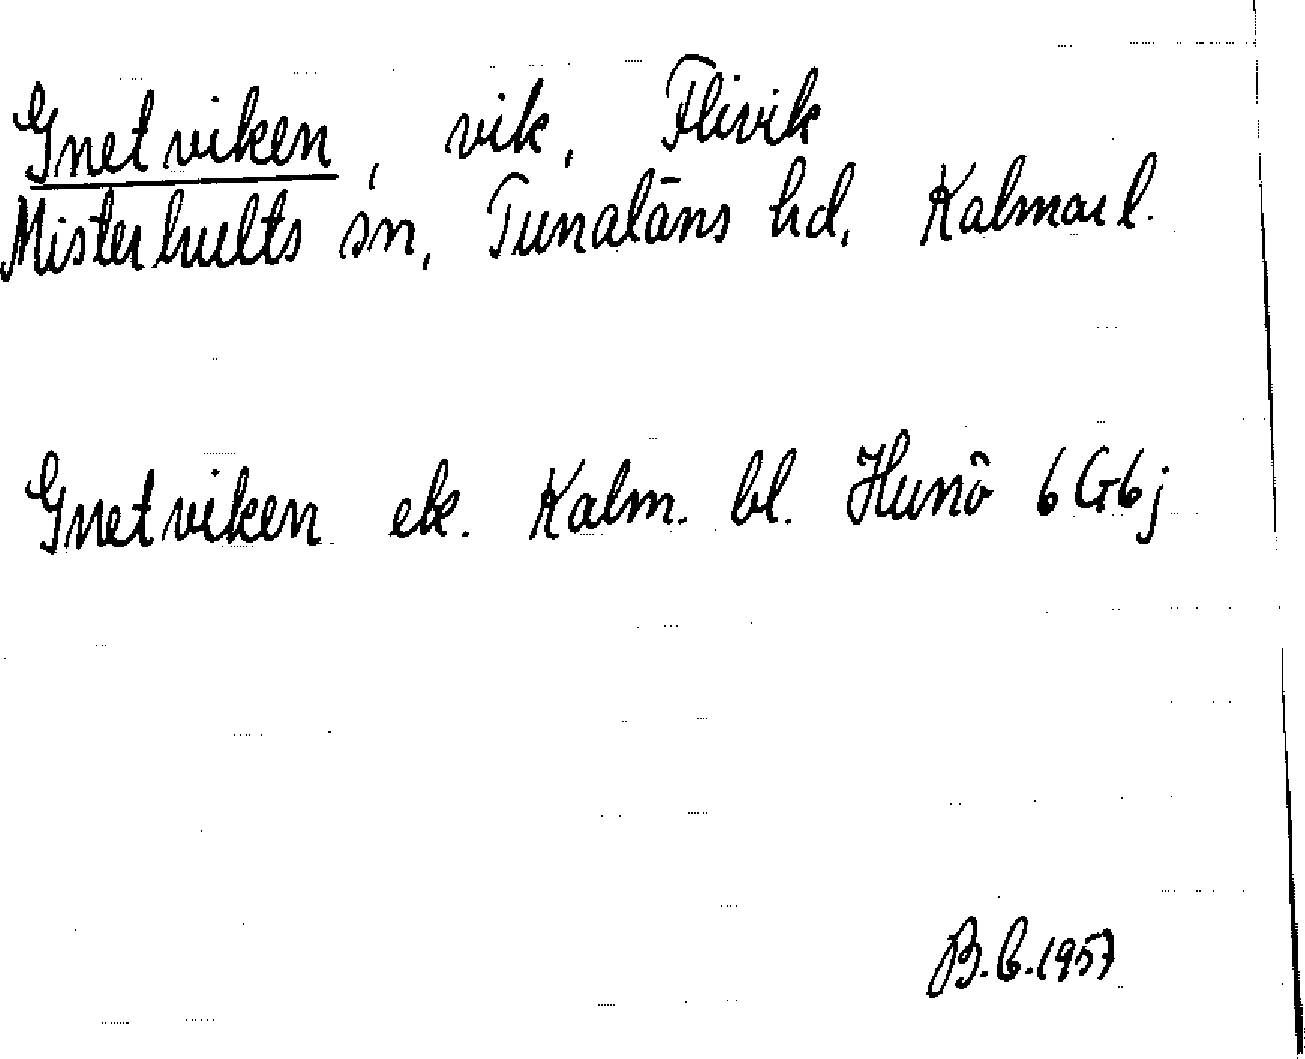 Gnetviken, vik, Flivik
Misterhults sn, Tunaläns hd, Kalmar l.
Gnetviken ek. Kalm. bl. Hunö 6G6j
B.C.1957